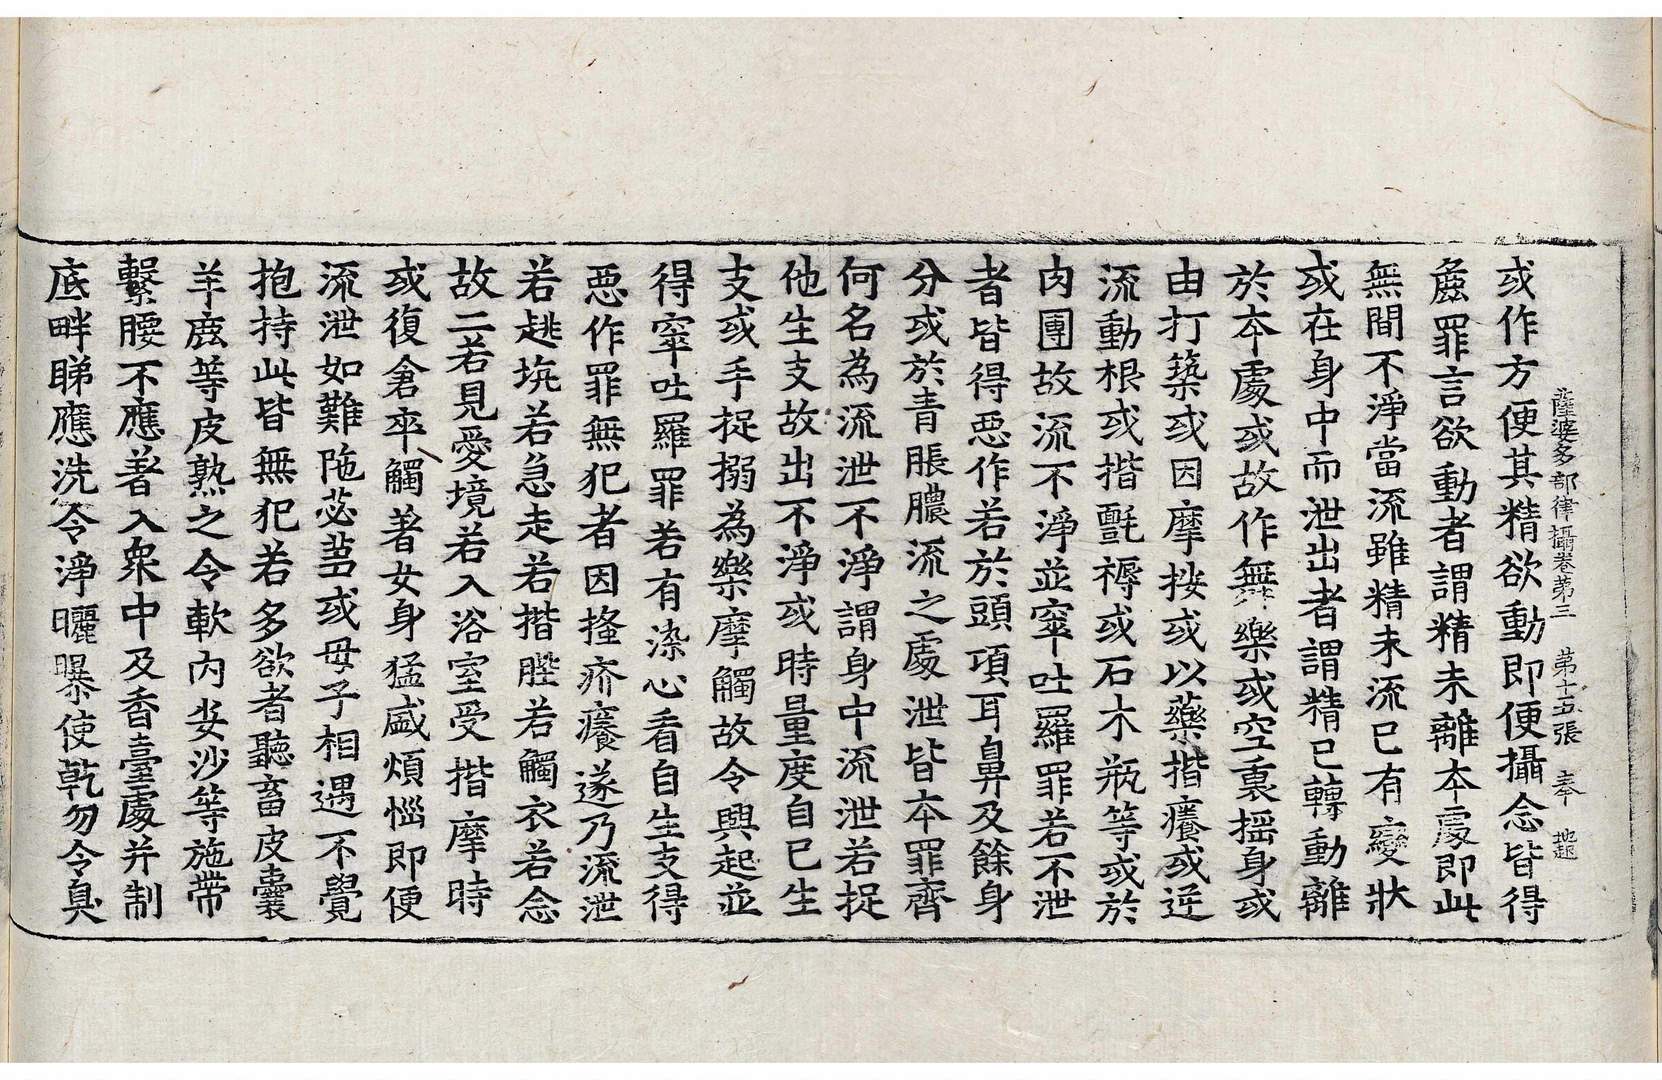 薩婆多部律攝卷第三　第十五張　奉
或作方便其精欲動即便攝念皆得
麁罪言欲動者謂精未離本處即此
無間不淨當流雖精未流已有變狀
或在身中而泄出者謂精已轉動離
於本處或故作舞樂或空裏搖身或
由打築或因摩按或以藥揩癢或逆
流動根或揩氈褥或石木瓶等或於
肉團故流不淨並窣吐羅罪若不泄
者皆得惡作若於頭項耳鼻及餘身
分或於青脹膿流之處泄皆本罪齊
何名為流泄不淨謂身中流泄若捉
他生支故出不淨或時量度自己生
支或手捉搦為樂摩觸故令興起並
得窣吐羅罪若有染心看自生支得
惡作罪無犯者因搔疥癢遂乃流泄
若趒坑若急走若揩䏶若觸衣若念
故二若見愛境若入浴室受揩摩時
或復倉卒觸著女身猛盛煩惱即便
流泄如難陁苾芻或母子相遇不覺
抱持此皆無犯若多欲者聽畜皮囊
羊鹿等皮熟之令軟內安沙等施帶
繫腰不應著入衆中及香臺處并制
底畔睇應洗令淨曬曝使乾勿令臭